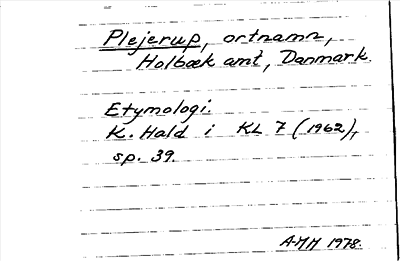 Plejerup, ortnamn,
Holbæk amt, Danmark.
Etymologi.
K. Hald i KL 7 (1962),
sp. 39.
AMH 1978